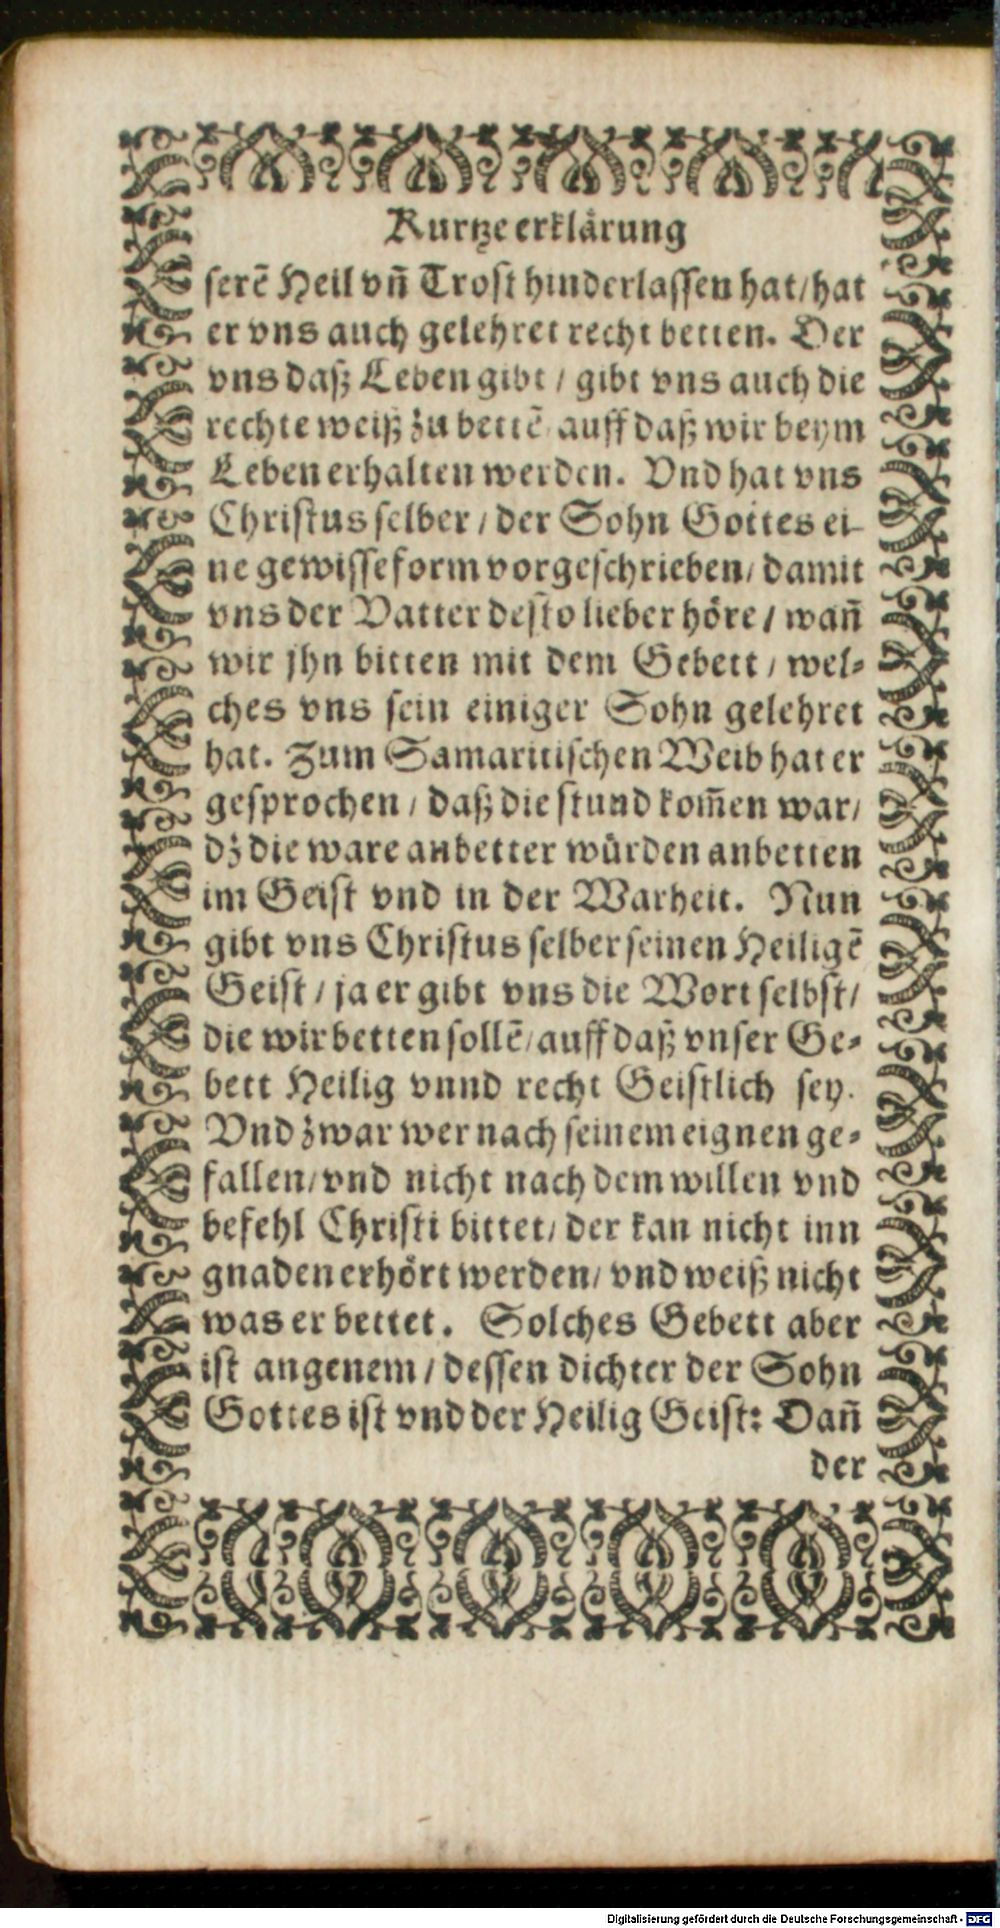 Kurtze erklärung
serẽ Heil vñ Trost hinderlassen hat/ hat
er vns auch gelehret recht betten. Der
vns daß Leben gibt / gibt vns auch die
rechte weiß zu bettẽ/ auff daß wir beym
Leben erhalten werden. Vnd hat vns
Christus selber / der Sohn Gottes ei-
ne gewisse form vorgeschrieben/ damit
vns der Vatter desto lieber höre / wañ
wir jhn bitten mit dem Gebett / wel-
ches vns sein einiger Sohn gelehret
hat. Zum Samaritischen Weib hat er
gesprochen / daß die stund kom̃en war/
dz die ware anbetter würden anbetten
im Geist vnd in der Warheit. Nun
gibt vns Christus selber seinen Heiligẽ
Geist / ja er gibt vns die Wort selbst/
die wir betten sollẽ/ auff daß vnser Ge-
bett Heilig vnnd recht Geistlich sey.
Vnd zwar wer nach seinem eignen ge-
fallen/ vnd nicht nach dem willen vnd
befehl Christi bittet/ der kan nicht inn
gnaden erhört werden/ vnd weiß nicht
was er bettet. Solches Gebett aber
ist angenem / dessen dichter der Sohn
Gottes ist vnd der Heilig Geist: Dañ
der
Digitalisierung gefördert durch die Deutsche Forschungsgemeinschaft - DFG